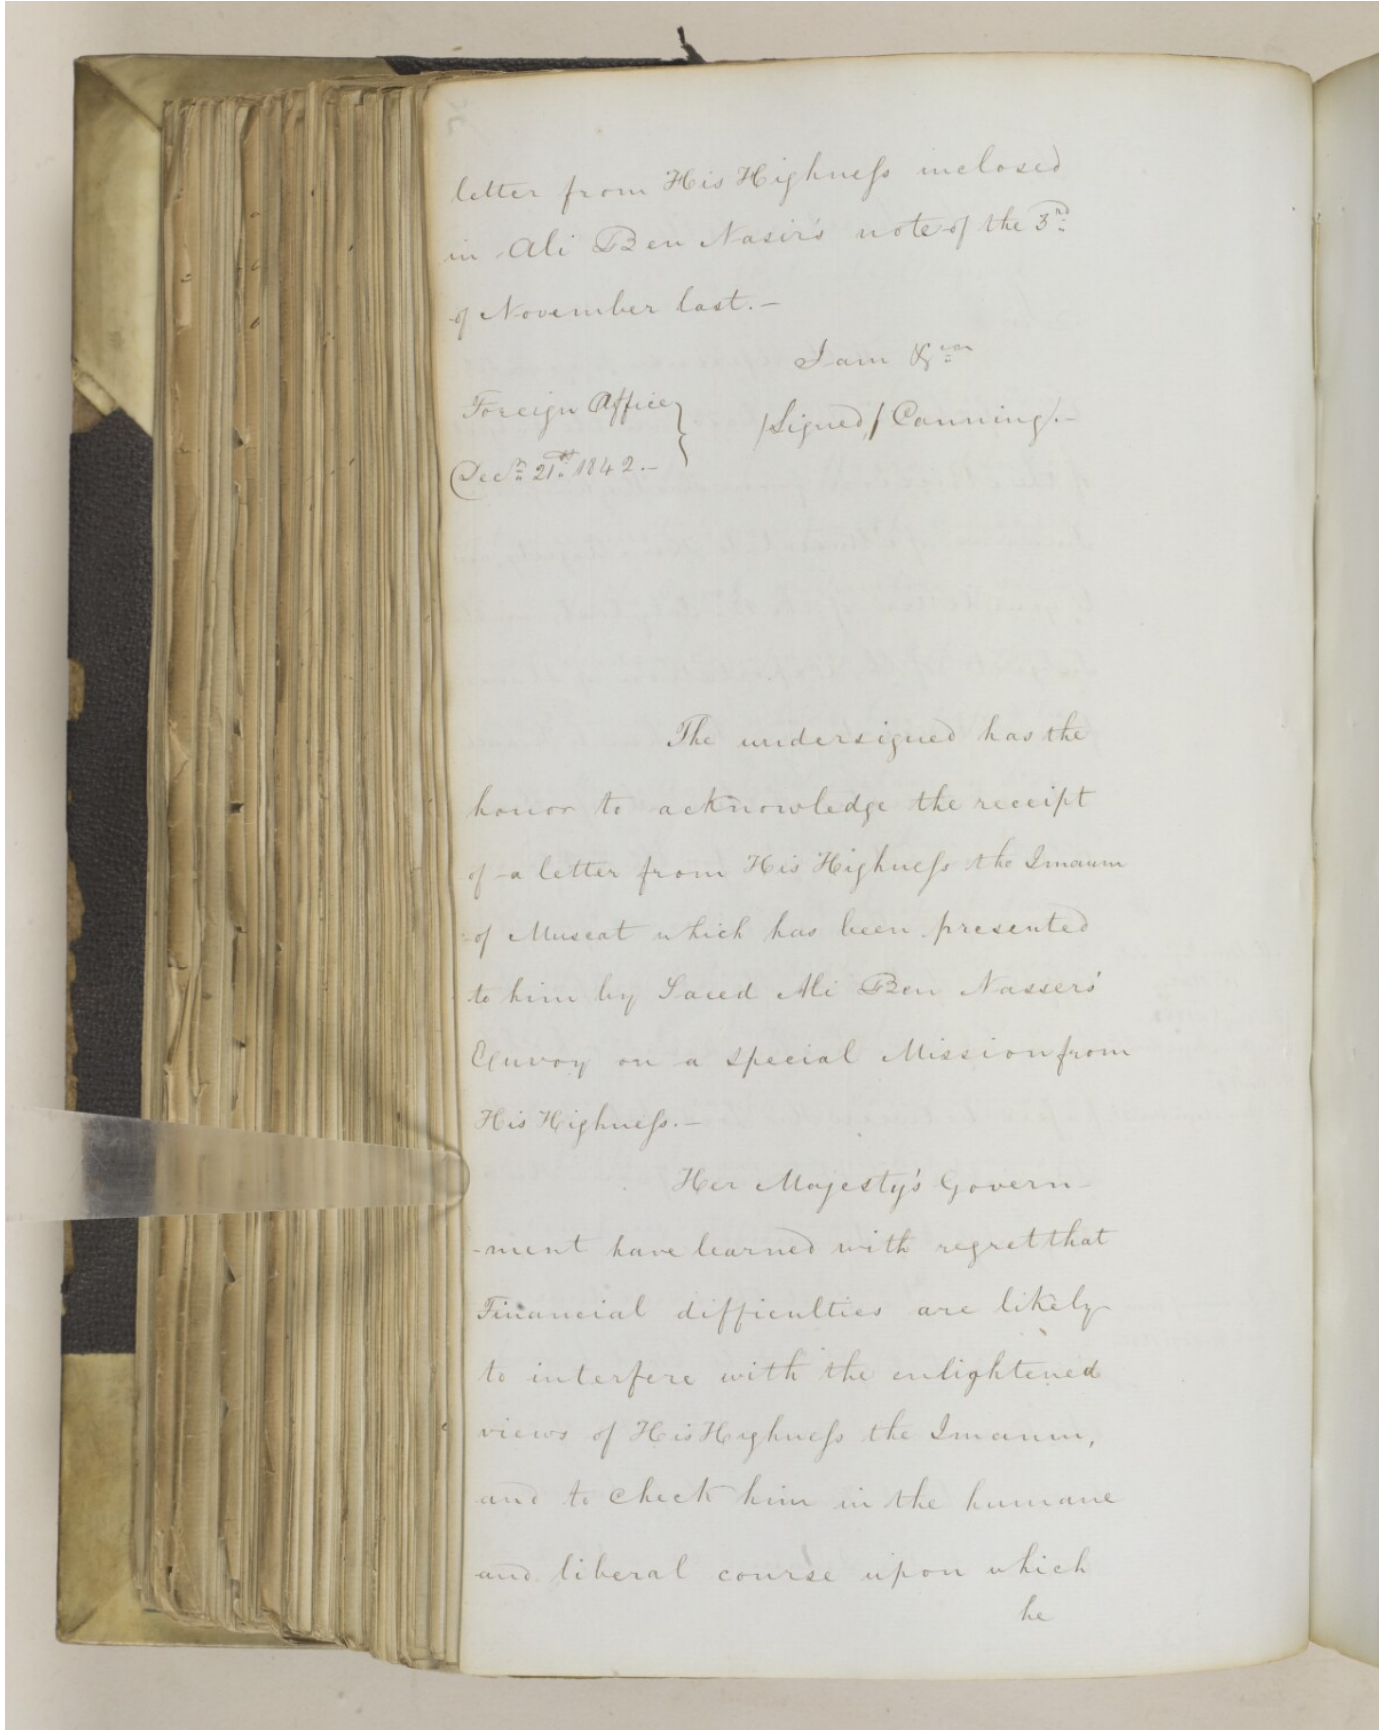 letter from His Highness inclosed
in Ali Ben Nasir's note of the 3rd
of November last.-
I am &ca
Foreign Office
/Signed/ Canning/.-
Decr 21st 1842.-
The undersigned has the
honor to acknowledge the receipt
of a letter from His Highness the Imaum
of Muscat which has been presented
to him by Saeed Ali Ben Nassers'
Envoy on a special Mission from
His Highness.-
Her Majesty's Govern-
-ment have learned with regret that
Financial difficulties are likely
to interfere with the enlightened
views of His Highness the Imaum,
and to check him in the humane
and liberal course upon which
he